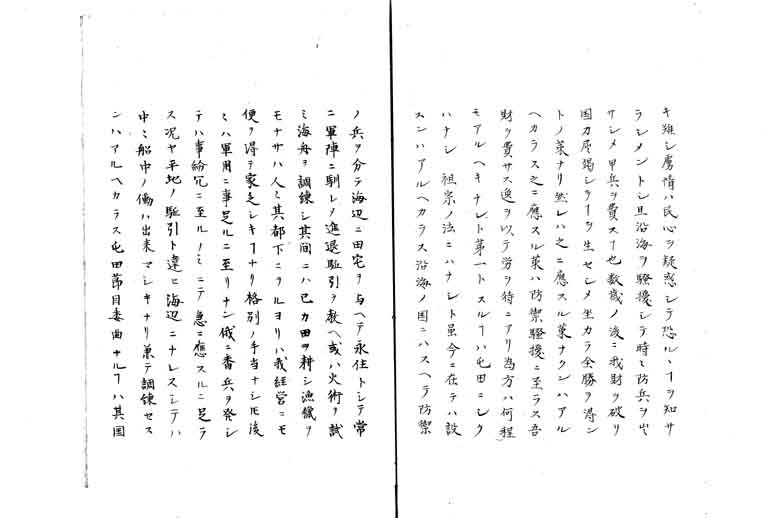 キ雖シ虜情ハ民心ヲ疑惑シテ恐ルヽヿヲ知サ
ラシメントシ且沿海ヲ騒擾シテ時々防兵ヲ出
サシメ甲兵ヲ費スヿ也数歳ノ後ニ我財ヲ破リ
国力ヲ屈竭シテ一ヲ生セシメ坐カラ全勝ヲ得ン
トノ策ナリ然レハ之ニ應スル策ナクンハアル
ヘカラス之ニ應スル策ハ防禦騒擾ニ至ラス吾
財ヲ費サス逸ヲ以テ労ヲ待ニアリ為方ハ何程
モアルヘキナレト第一トスルヿハ屯田ニシク
ハナシ 祖宗ノ法ニハナシト虽今ニ在テハ設
スンハアルヘカラス沿海ノ国ニハスヘテ防禦
ノ兵ヲ分テ海辺ニ田宅ヲ与ヘテ永住トシテ常
ニ軍陣ニ馴レシメ進退駈引ヲ教ヘ或ハ火術ヲ試
ミ海舟ヲ調練シ其間ニハ已カ田ヲ耕シ漁獵ヲ
モナサハ人々其都下ニヲルヨリハ我経営ニモ
便ヲ得テ家乏シキヿナリ格別ノ手当ナシ𪜈後
ミハ軍用ニ事足ルニ至リナン俄ニ番兵ヲ発シ
テハ事紛冗ニ至ルノミニテ急ニ應スルニ足ラ
ス况ヤ平地ノ駈引ト違ヒ海辺ニナレスシテハ
中々船中ノ働ハ出来マシキナリ兼テ調練セス
ンハアルヘカラス屯田節目委曲ナルヿハ其国